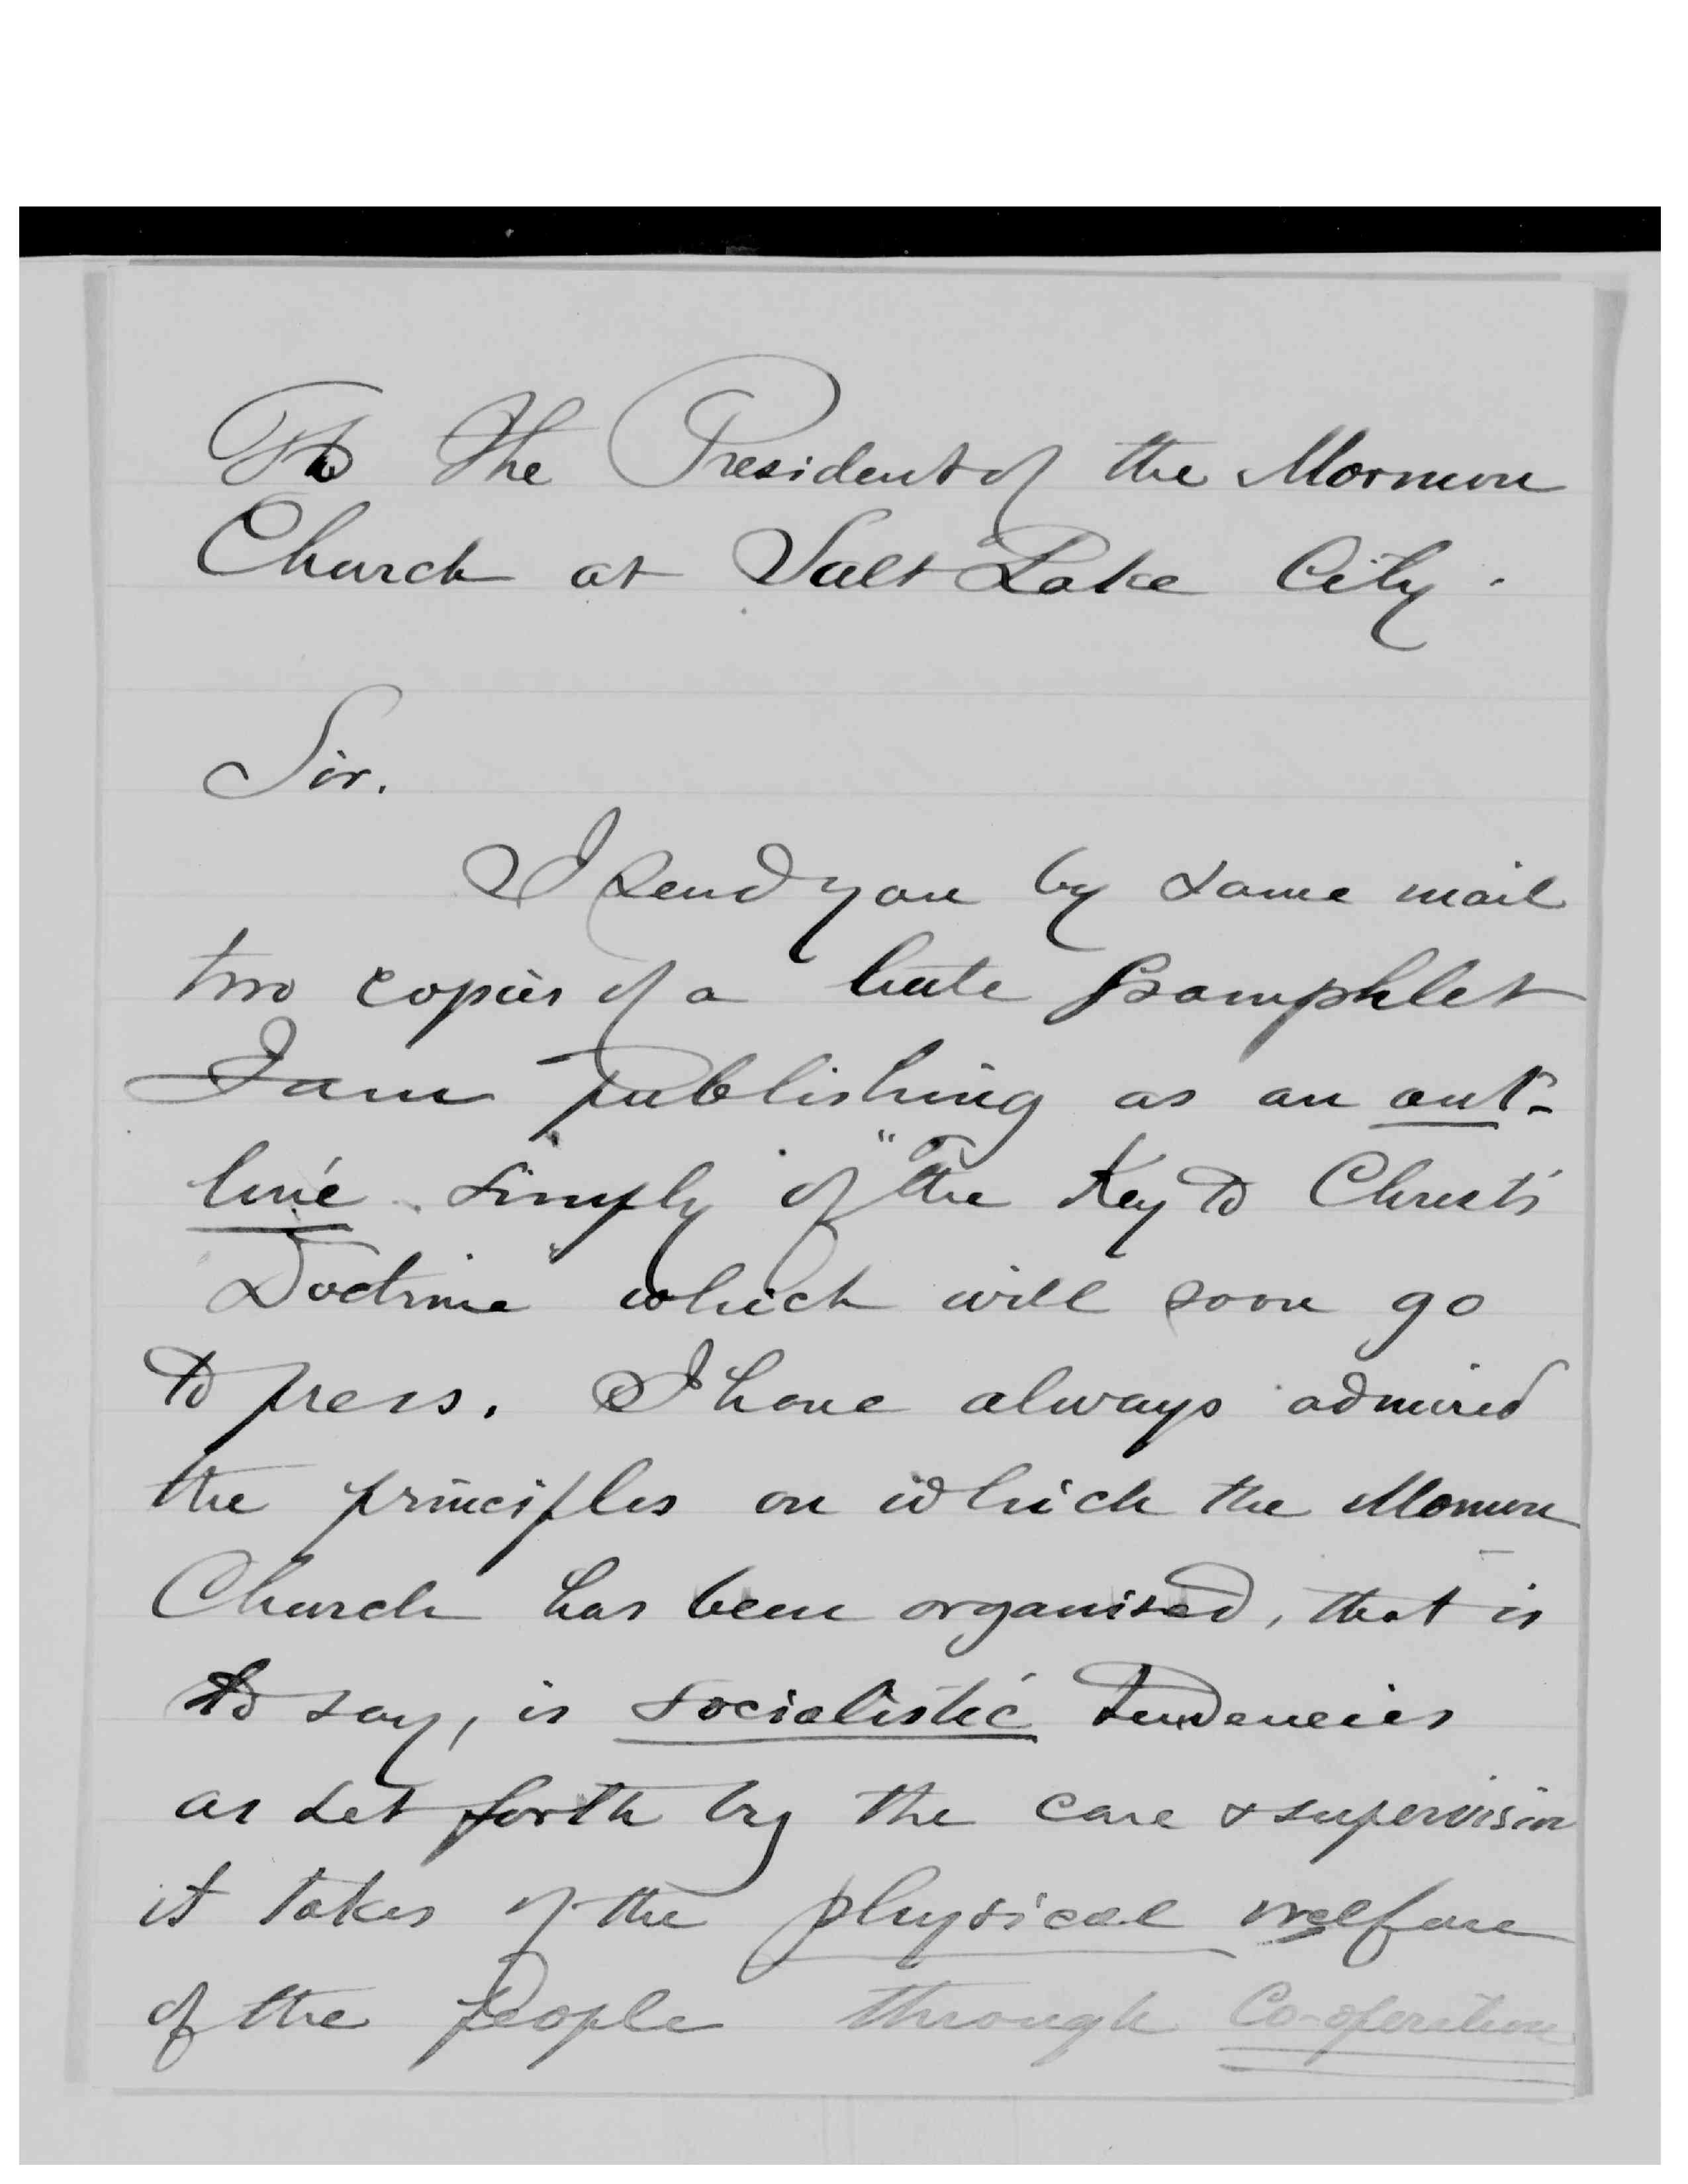 To the President of the Mormon
Church at Salt Lake City.
Sir.
I send you by same mail
two copies of a little pamphlet
I am publishing as an out-
line simply of "The Key to Christ's
Doctrine" which will soon go
to press. I have always admired
the principles on which the Mormon
Church has been organised, that is
to say, is socialistic tendencies
as set forth by the care & supervision
it takes of the physical welfare
of the people through Co-operation